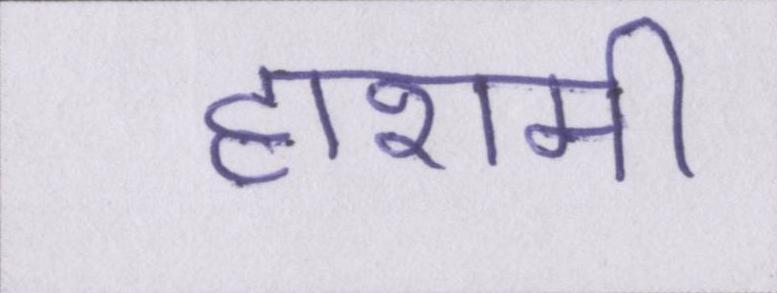 हाशमी